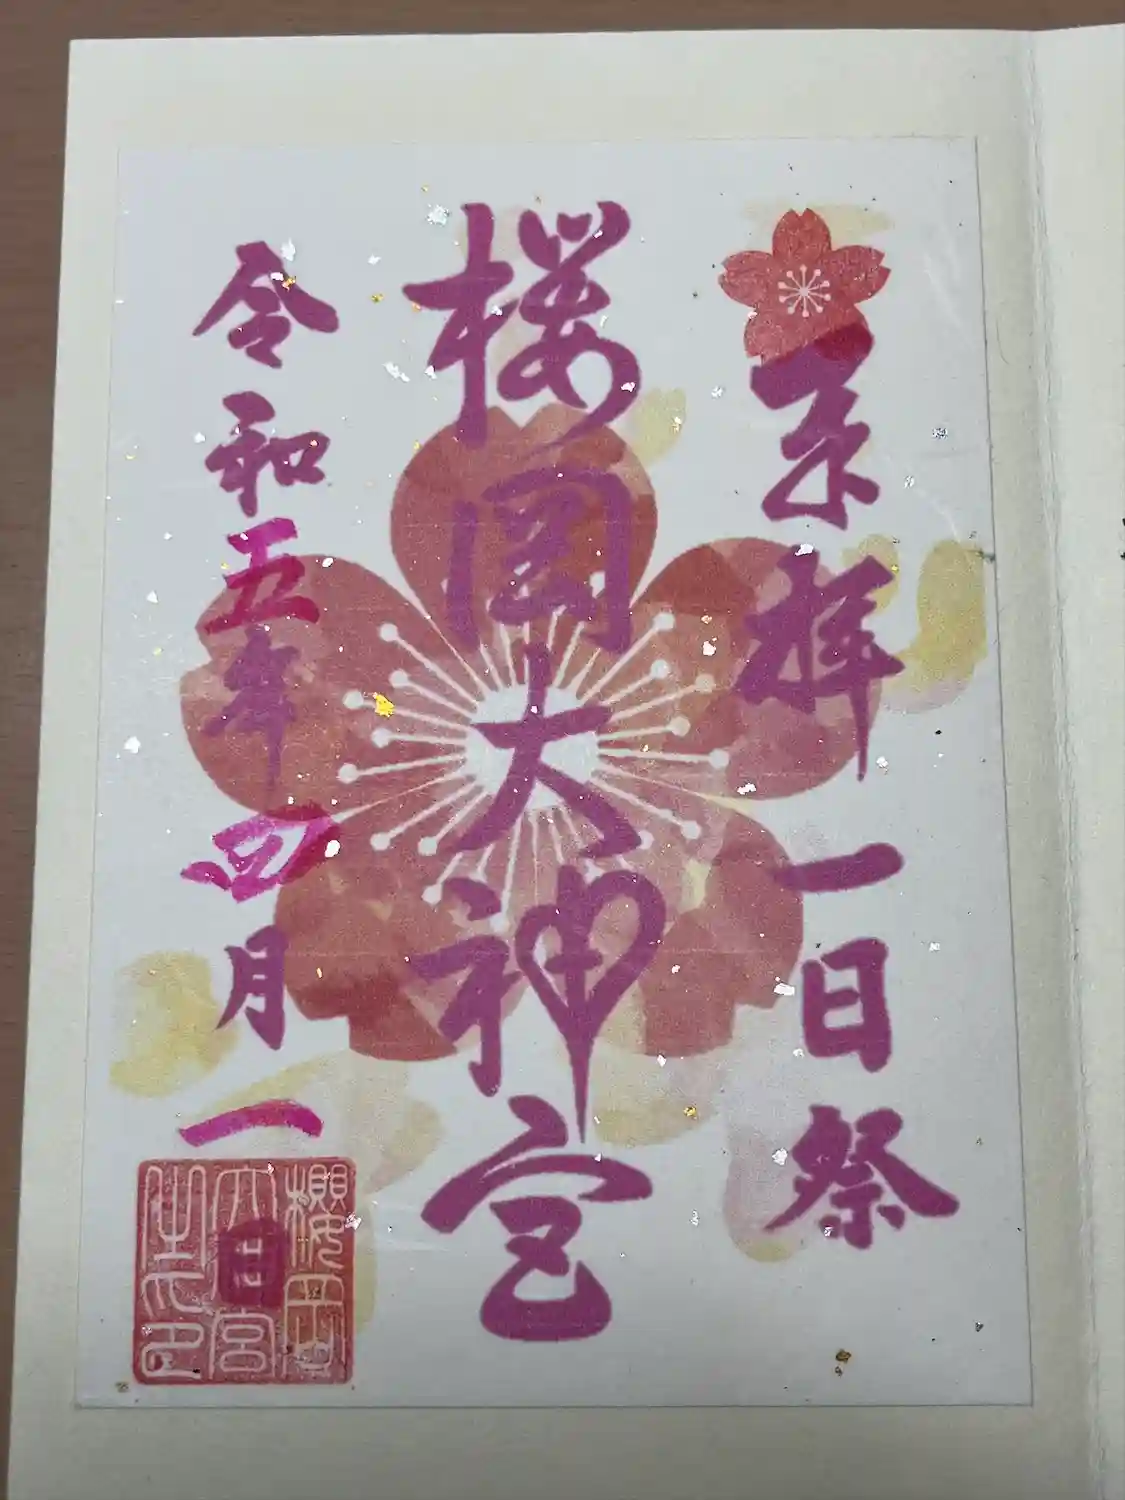 奉拝 一日祭
桜岡大神宮
令和五年四月一日
櫻岡
大神宮
之印